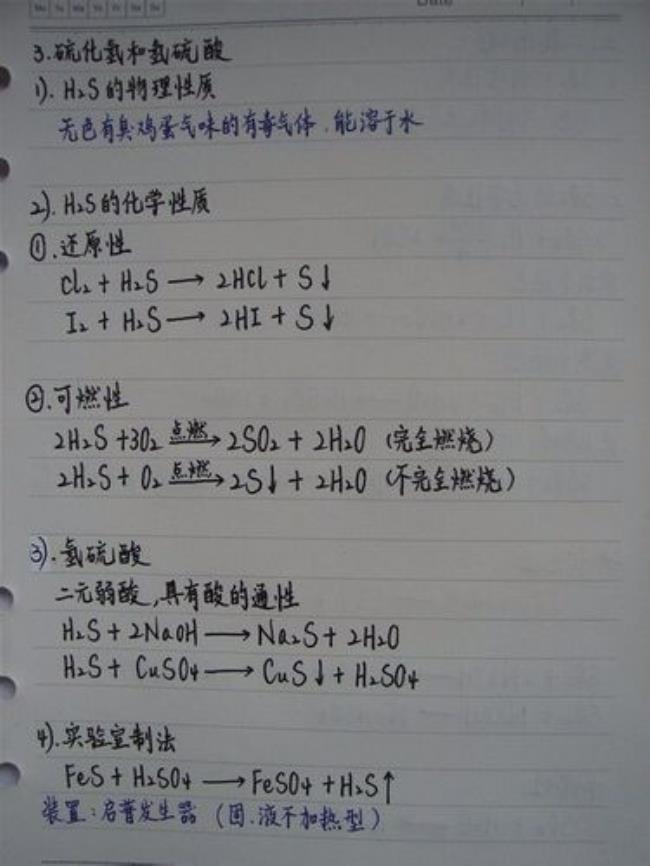 Date
3. 硫化氢和氢硫酸
1). H₂S的物理性质
无色有臭鸡蛋气味的有毒气体.能溶于水
2). H₂S的化学性质
①.还原性
Cl₂ + H₂S ⟶ 2HCl + S↓
I₂ + H₂S ⟶ 2HI + S↓
②.可燃性
2H₂S +3O₂ 点燃⟶ 2SO₂ + 2H₂O (完全燃烧)
2H₂S + O₂ 点燃⟶ 2S↓ + 2H₂O (不完全燃烧)
3).氢硫酸
二元弱酸,具有酸的通性
H₂S + 2NaOH ⟶ Na₂S + 2H₂O
H₂S + CuSO₄ ⟶ CuS↓ + H₂SO₄
4).实验室制法
FeS + H₂SO₄ ⟶ FeSO₄ + H₂S↑
装置:启普发生器 (固.液不加热型)